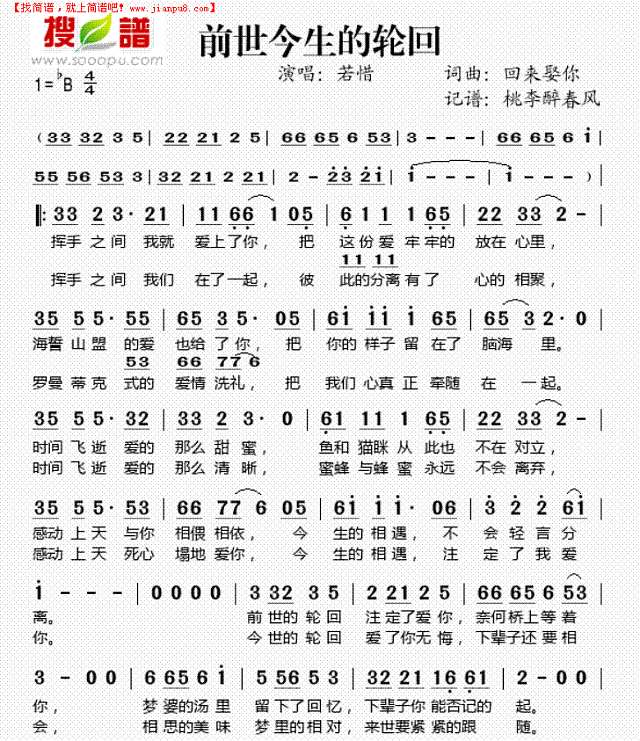 【找简谱,就上简谱吧!www.jianpu8.com】
搜谱
www.sooopu.com
前世今生的轮回
演唱：若惜 词曲：回来娶你
1=♭B 4/4 记谱：桃李醉春风
( 33 32 3 5 | 22 21 2 5 | 66 65 6 53 | 3 - - - | 66 65 6 i |
55 56 53 3 | 32 21 2 21 | 2 - 23 21 | i - - - | i - - - )
‖: 33 2 3· 21 | 11 66 1 05 | 6 1 1 1 65 | 22 33 2 - |
挥手 之 间 我就 爱上了你， 把 这份爱 牢牢的 放在 心里，
11 11
挥手 之 间 我们 在了一起， 彼 此的分离有了 心的 相聚，
35 5 5· 55 | 65 3 5· 05 | 6i i i i 65 | 65 35 3 - |
海誓 山 盟 的爱 也给 了你， 把 你的 样子 留在了 脑海 里。
53 66 77 6
罗曼 蒂克 式的 爱情 洗礼， 把 我们 心真 正 牵随 在 一起。
35 5 5· 32 | 33 2 3· 0 | 61 1 1 65 | 22 33 2 - |
时间 飞逝 爱的 那么 甜 蜜， 鱼和 猫眯 从 此也 不在 对立，
时间 飞逝 爱的 那么 清 晰， 蜜蜂 与蜂 蜜 永远 不会 离弃，
35 5 5· 53 | 66 77 6 05 | 6i i i· 06 | 3 2 2 6i |
感动 上天 与你 相偎 相依， 今 生的 相遇， 不 会 轻 言 分
感动 上天 死心 塌地 爱你， 今 生的 相遇， 注 定 了 我 爱
i - - - | 0 0 0 0 | 3 32 3 5 | 2 21 2 5 | 6 65 6 53 |
离。 前 世的 轮 回 注 定了 爱 你，奈何 桥上 等着
你。 今 世的 轮 回 爱 了你 无 悔，下辈 子还 要相
3 - 0 0 | 6 65 6 i | 5 56 5 3 | 32 21 16 61 | 2 - 0 0 |
你， 梦 婆的 汤 里 留 下了 回 忆，下辈子你 能否记的 起。
会， 相 思的 美 味 梦 里的 相 对，来世要紧 紧的跟 随。